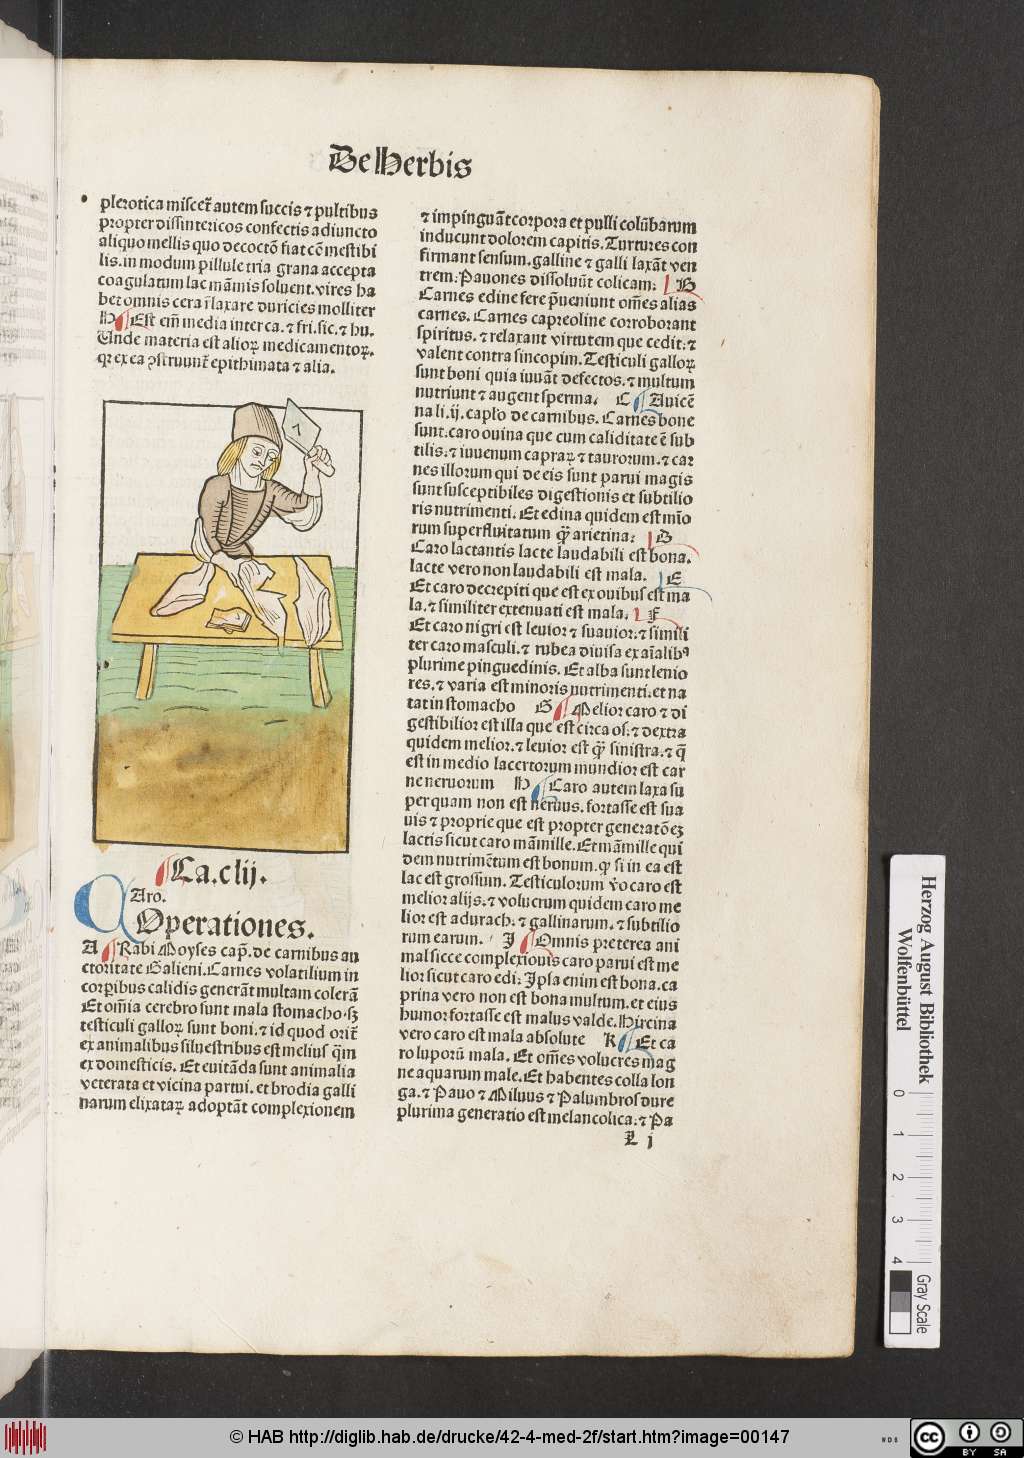 De Herbis
plerotica miscet᷑ autem succis ⁊ pultibus
propter dissintericos confectis adiuncto
aliquo mellis quo decoctō fiat cē mestibi
lis. in modum pillule tria grana accepta
coagulatum lac māmis soluent. vires ha
bet omnis cera r̄laxare duricies molliter
H Est em̄ media inter ca. ⁊ fri. sic. ⁊ hu.
Unde materia est alioꝝ medicamentoꝝ.
qꝛ ex ea ꝯstruunt᷑ epithimata ⁊ alia.
Ca. clij.
CAro.
Operationes.
A Rabi Moyses cap̄. de carnibus au
ctoritate Galieni. Carnes volatilium in
corꝑibus calidis generāt multam colerā
Et om̄ia cerebro sunt mala stomacho. sꝫ
testiculi galloꝝ sunt boni. ⁊ id quod orit᷑
ex animalibus siluestribus est melius q̄m
ex domesticis. Et euitāda sunt animalia
veterata et vicina partui. et brodia galli
narum elixataꝝ adoptāt complexionem
⁊ impinguāt corpora et pulli colūbarum
inducunt dolorem capitis. Turtures con
firmant sensum. galline ⁊ galli laxāt ven
trem. Pauones dissoluūt colicam. B
Carnes edine fere p̄ueniunt om̄es alias
carnes. Carnes capreoline corroborant
spiritus. ⁊ relaxant virtutem que cedit. ⁊
valent contra sincopim. Testiculi galloꝝ
sunt boni quia iuuāt defectos. ⁊ multum
nutriunt ⁊ augent sperma. C Auicē
na li. ij. caplo de carnibus. Carnes bone
sunt. caro ouina que cum caliditate ē sub
tilis. ⁊ iuuenum capraꝝ ⁊ taurorum. ⁊ car
nes illorum qui de eis sunt parui magis
sunt susceptibiles digestionis et subtilio
ris nutrimenti. Et edina quidem est mīo
rum superfluitatum q̄ꝫ arietina. D
Caro lactantis lacte laudabili est bona.
lacte vero non laudabili est mala. E
Et caro decrepiti que est ex ouibus est ma
la. ⁊ similiter extenuati est mala. F
Et caro nigri est leuior ⁊ suauior. ⁊ simili
ter caro masculi. ⁊ rubea diuisa ex aīalibꝰ
plurime pinguedinis. Et alba sunt lenio
res. ⁊ varia est minoris nutrimenti. et na
tat in stomacho G Melior caro ⁊ di
gestibilior est illa que est circa os. ⁊ dextra
quidem melior. ⁊ leuior est q̄ꝫ sinistra. ⁊ q̄
est in medio lacertorum mundior est car
ne neruorum H Caro autem laxa su
per quam non est neruus. fortasse est sua
uis ⁊ proprie que est propter generatōeꝫ
lactis sicut caro māmille. Et māmille qui
dem nutrimētum est bonum. ꝙ si in ea est
lac est grossum. Testiculorum v̓o caro est
melior alijs. ⁊ volucrum quidem caro me
lior est adurach. ⁊ gallinarum. ⁊ subtilio
rum earum. J Omnis preterea ani
mal sicce complexionis caro parui est me
lior sicut caro edi. Ipsa enim est bona. ca
prina vero non est bona multum. et eius
humor fortasse est malus valde. Hircina
vero caro est mala absolute K Et ca
ro luporū mala. Et om̄es volucres mag
ne aquarum male. Et habentes colla lon
ga. ⁊ Pauo ⁊ Miluus ⁊ Palumbros dure
plurima generatio est melancolica. ⁊ Pa
L j
Herzog August Bibliothek
Wolfenbüttel
0 1 2 3 4
Gray Scale
© HAB http://diglib.hab.de/drucke/42-4-med-2f/start.htm?image=00147
WDB
cc BY SA